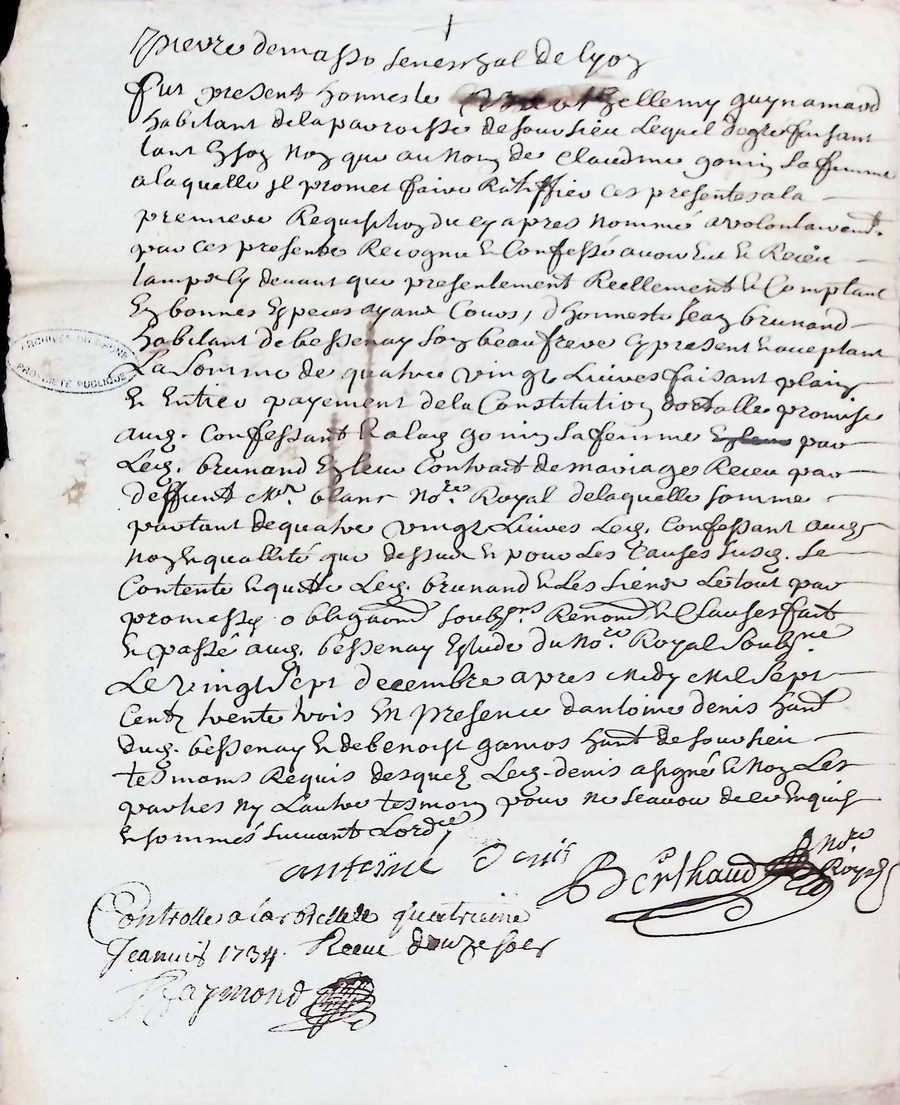 Pierre demasso seneschal de lyon
fut present honneste barthellemy guynamard
habitant delaparoisse de sourSieu Lequel degré faisant
tant En son Nom que au nom de Claudine gonin Sa femme
alaquelle Il promet faire Ratiffier ces presentes ala
premiere Requisition du cy apres nommé a volontairem.t
par ces presentes Recognu & Confessé avoir Eut & Receu
tampt cy devant que presentement Reellement & Comptant
En bonnes Especes ayant Cours, d'honneste Jean brunand
habitant de bessenay Son beaufrere cy present & acceptant
La Somme de quatre vingt Livres faisant plain
& Entier payement dela Constitution dottalle promise
aud. Confessant & alad. gonin Sa femme par
Led. brunand En leur Contract de mariage Receu par
deffunt M.r blanc No.re Royal de laquelle somme
partant de quatre vingt Livres Led. Confessant aud.
nom & quallité que dessus & pour Les Causes susd. Se
Contente & quitte Led. brunand & Les Siens Letout par
promesse obliga.on soubz.ons Renon.on & Clauses fait
& passé aud. bessenay Estude du No.re Royal Soubz.né
Le vingt Sept decembre apres Midy Mil Sept
Cent trente trois En presence dantoine denis ha.nt
dud. bessenay & de benoist gamos ha.nt de sourSieu
tesmoins Requis desquels Led. denis a signé & Non Les
parties ny L'autre tesmoin pour ne Scavoir de ce Enquis
& sommés suivant Lord.ce
antoine Denis
Berthaud No.re
Royal
Controllé a larbresle le quatrieme
Jeanvier 1734. Receu douze sols
Raymond
ARCHIVES DU RHONE
PROPRIÉTÉ PUBLIQUE